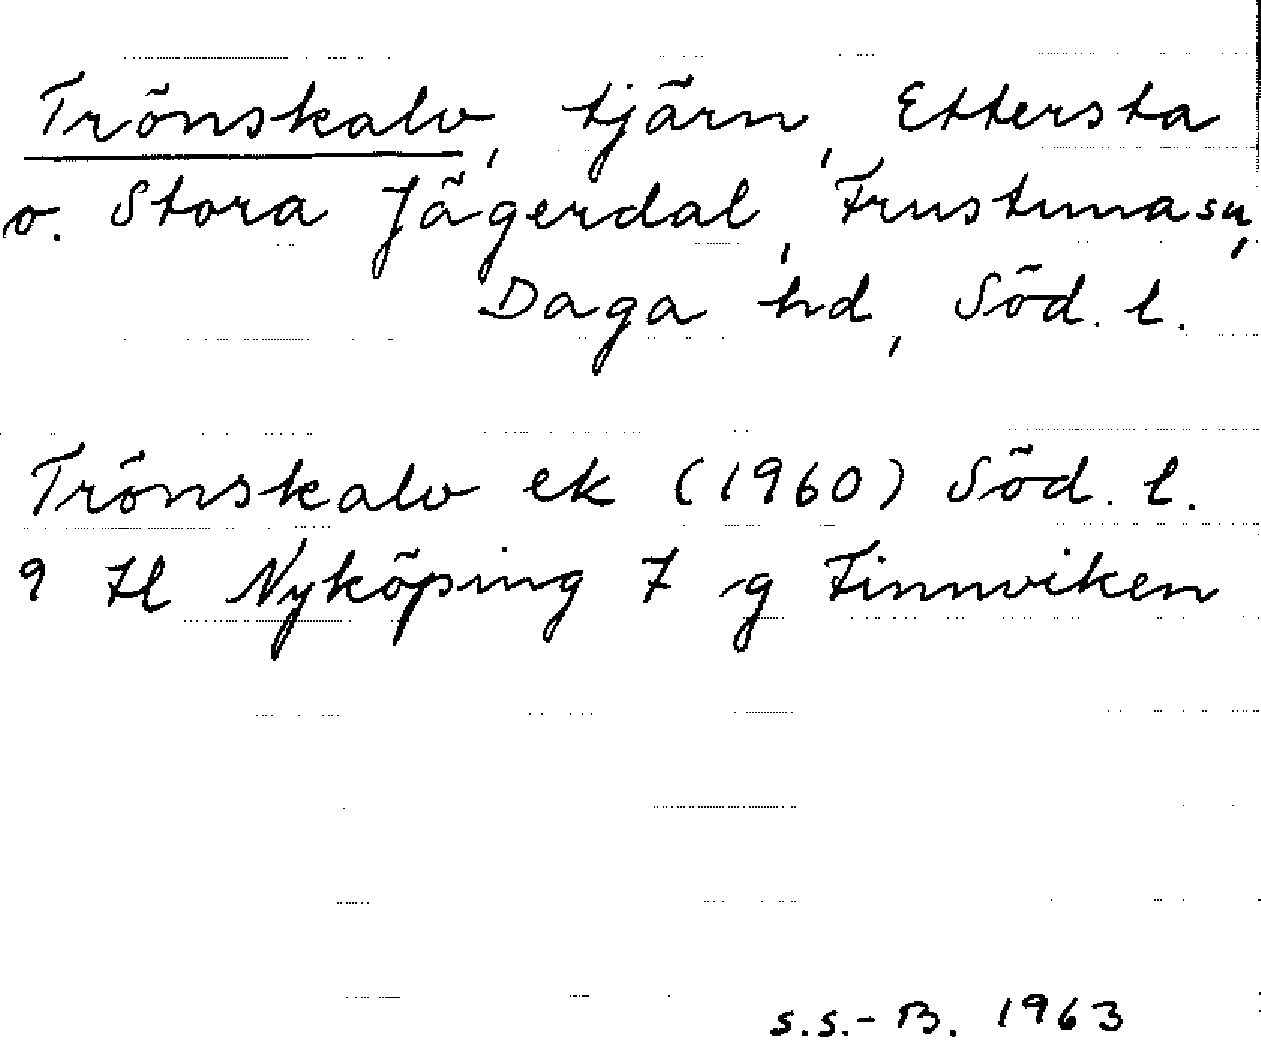 Trönskalv, tjärn, Ettersta
o. Stora Jägerdal, Frustuna sn,
Daga hd, Söd. l.
Trönskalv ek (1960) Söd. l.
9 H Nyköping 7 g Finnviken
S.S.-B. 1963